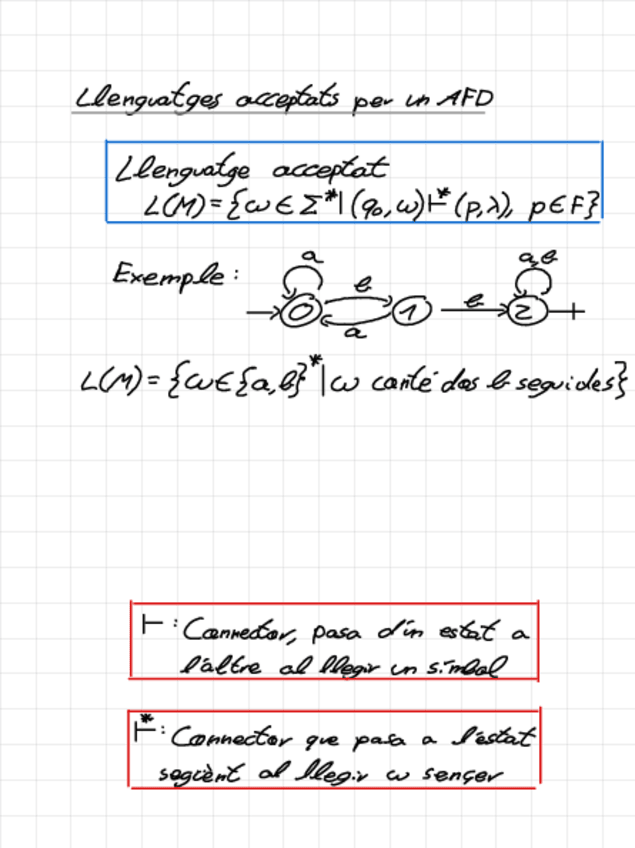 Llenguatges acceptats per un AFD
Llenguatge acceptat
L(M) = {ω ∈ Σ* | (q₀, ω) ⊢* (p, λ), p ∈ F}
Exemple:
a
b
a,b
0
1
b
2
a
L(M) = {ω ∈ {a, b}* | ω conté dos b seguides}
⊢: Connector, pasa d'un estat a
l'altre al llegir un símbol
⊢*: Connector que pasa a l'estat
següent al llegir ω sençer